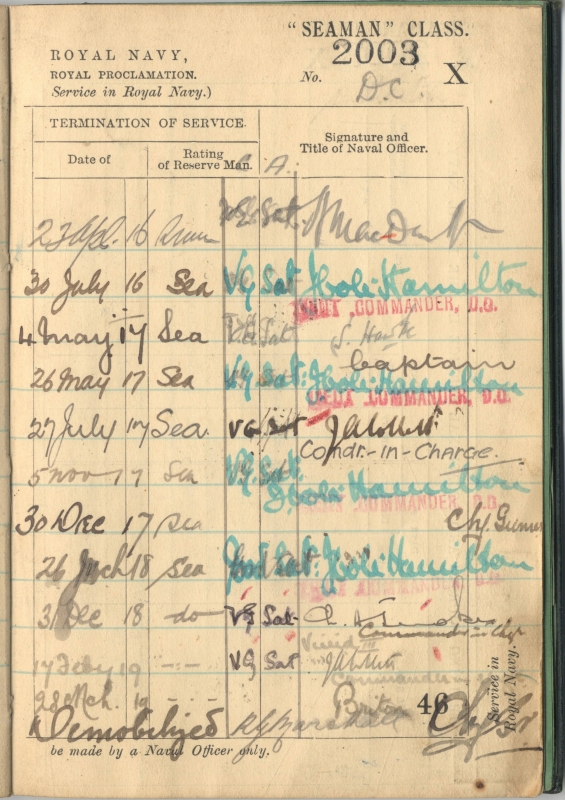 "SEAMAN" CLASS.
ROYAL NAVY,
2003
ROYAL PROCLAMATION.
No.
X
Service in Royal Navy.)
D.C.
TERMINATION OF SERVICE.
Signature and
Title of Naval Officer.
Date of
Rating
of Reserve Man.
C. A.
23 Apl. 16 VG Sat.
30 July 16 Sea VG Sat Hamilton
LIEUT COMMANDER, D.O.
4 May 17 Sea VG Sat
Captain
26 May 17 Sea VG Sat. Hamilton
LIEUT COMMANDER, D.O.
27 July 17 Sea. VG Sat
Comdr.-in-Charge.
5 Nov 17 Sea VG Sat. Hamilton
LIEUT COMMANDER, D.O.
30 Dec 17 Sea
26 Mch 18 Sea Good Sat. Hamilton
LIEUT COMMANDER, D.O.
31 Dec 18 do VG Sat
17 Feby 19 -:- VG Sat
28 Mch. 19
Briton 46
Demobilized Marshall
Service in
Royal Navy.
be made by a Naval Officer only.